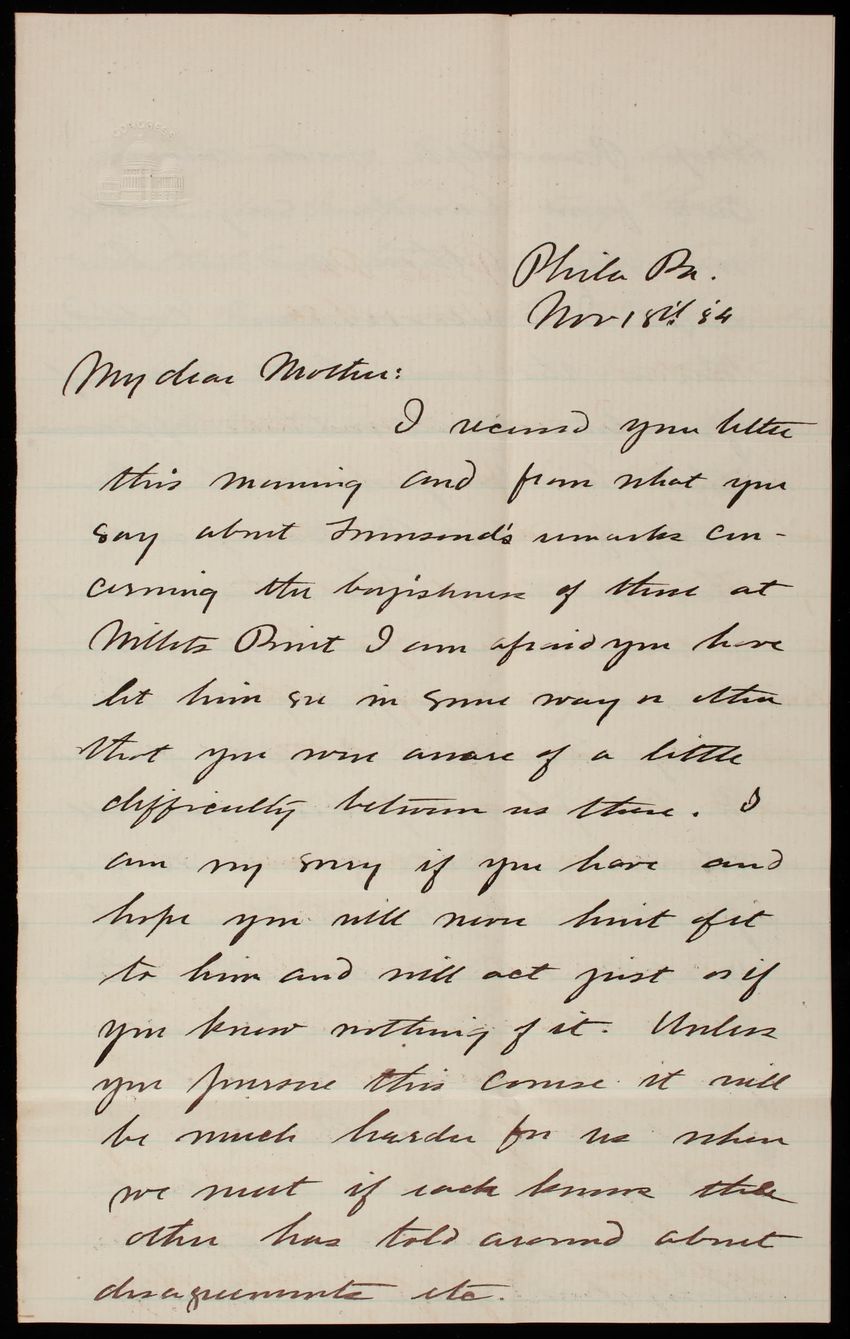 CONGRESS
Phila Pa.
Nov 18th '84
My dear Mother:
I received your letter
this morning and from what you
say about Townsend's remarks con-
cerning the boyishness of those at
Willets Point I am afraid you have
let him see in some way or other
that you were aware of a little
difficulty between us there. I
am very sorry if you have and
hope you will never hint of it
to him and will act just as if
you knew nothing of it. Unless
you pursue this course it will
be much harder for us when
we meet if each knows the
other has told around about
disagreements etc.